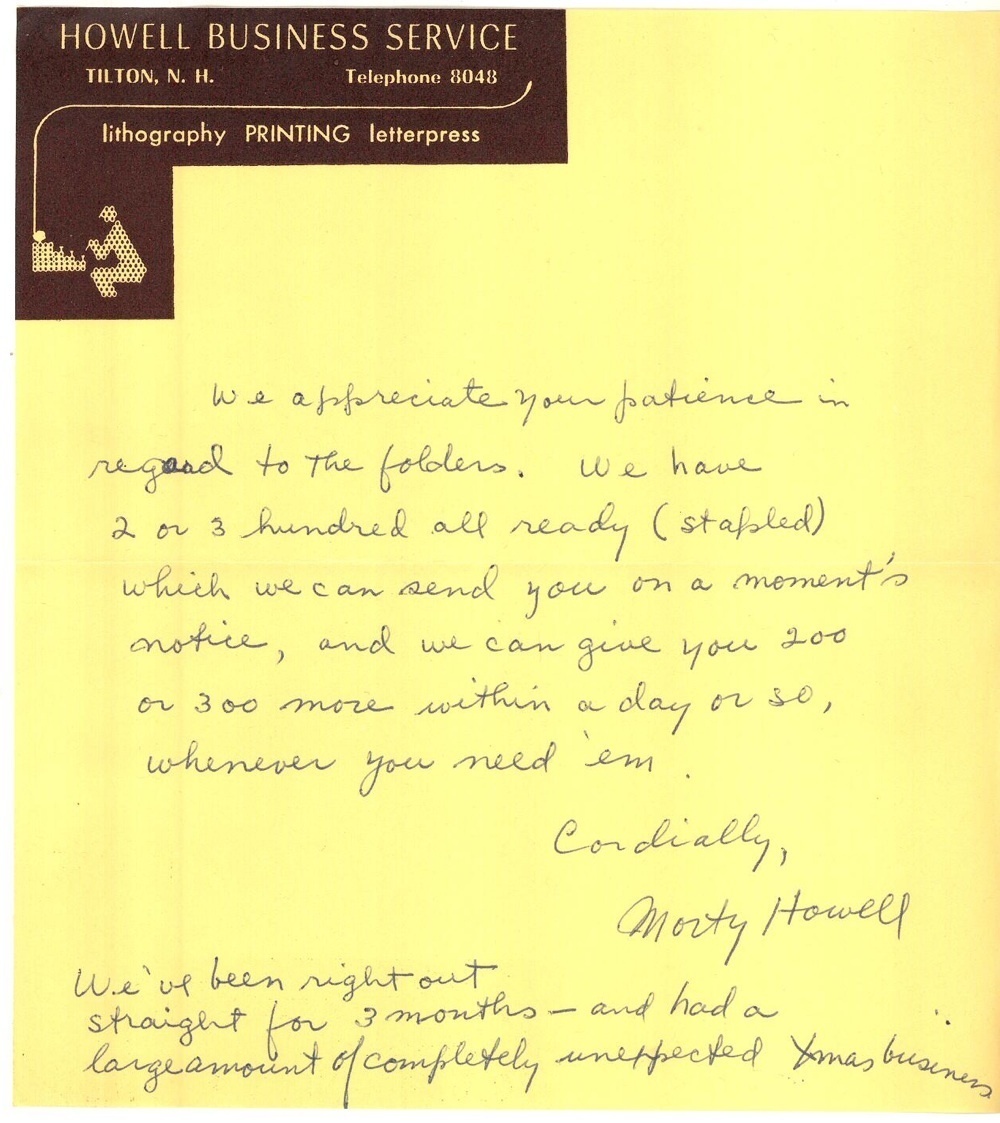 HOWELL BUSINESS SERVICE
TILTON, N. H. Telephone 8048
lithography PRINTING letterpress
We appreciate your patience in
regard to the folders. We have
2 or 3 hundred all ready (stapled)
which we can send you on a moment's
notice, and we can give you 200
or 300 more within a day or so,
whenever you need 'em.
Cordially,
Morty Howell
We've been right out
straight for 3 months – and had a
large amount of completely unexpected Xmas business